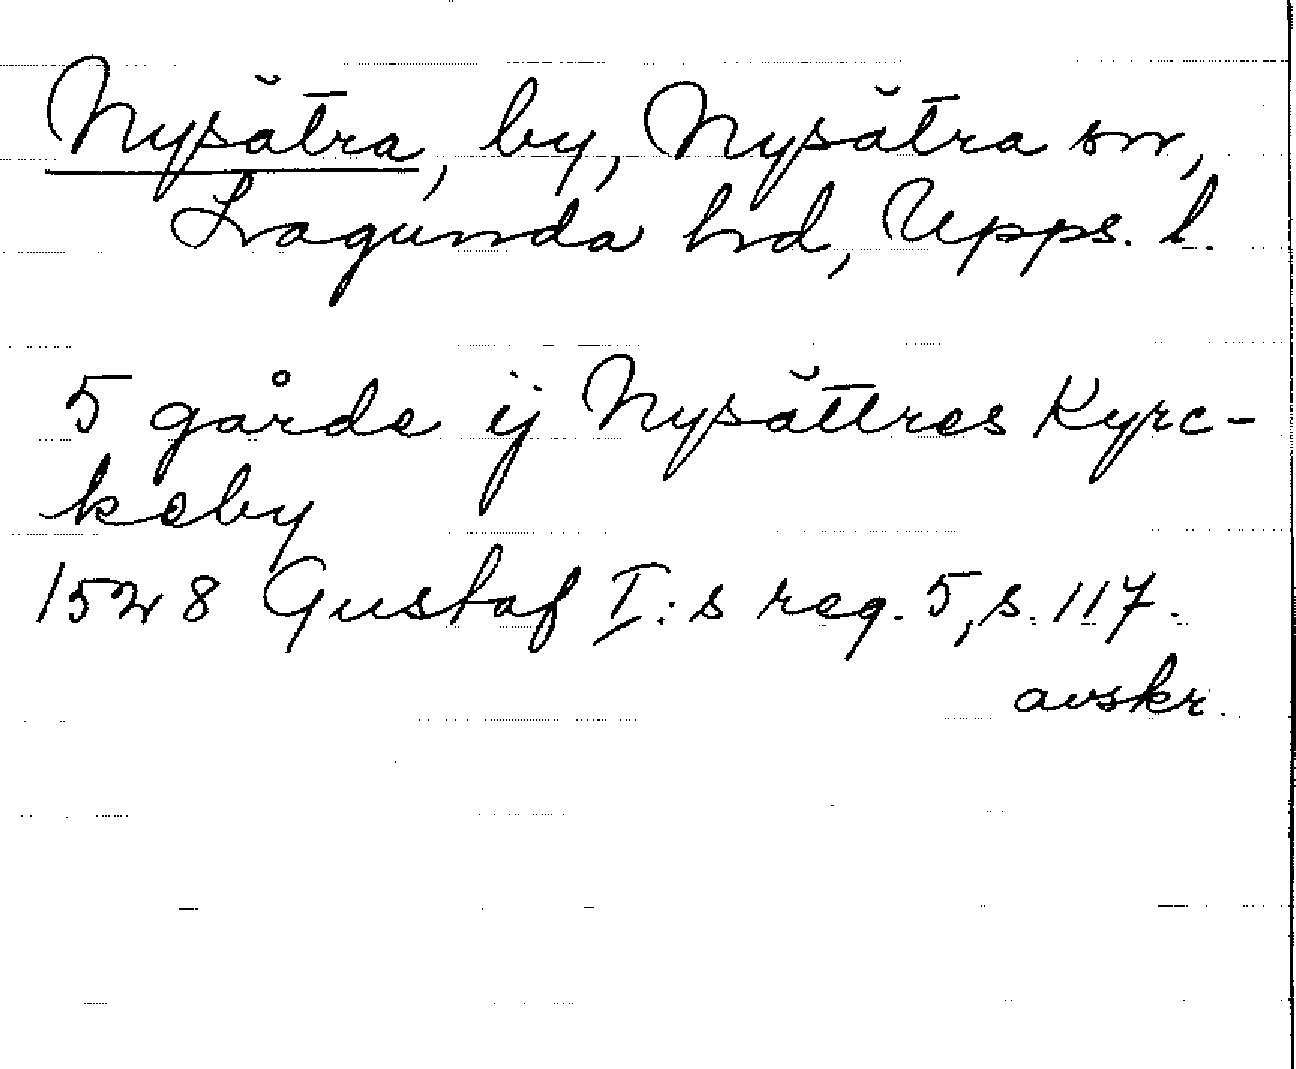 Nysätra, by, Nysätra sn,
Lagunda hd, Upps. l.
5 gårde ij Nysättres Kyrc-
keby
1528 Gustaf I:s reg. 5, s. 117.
avskr.